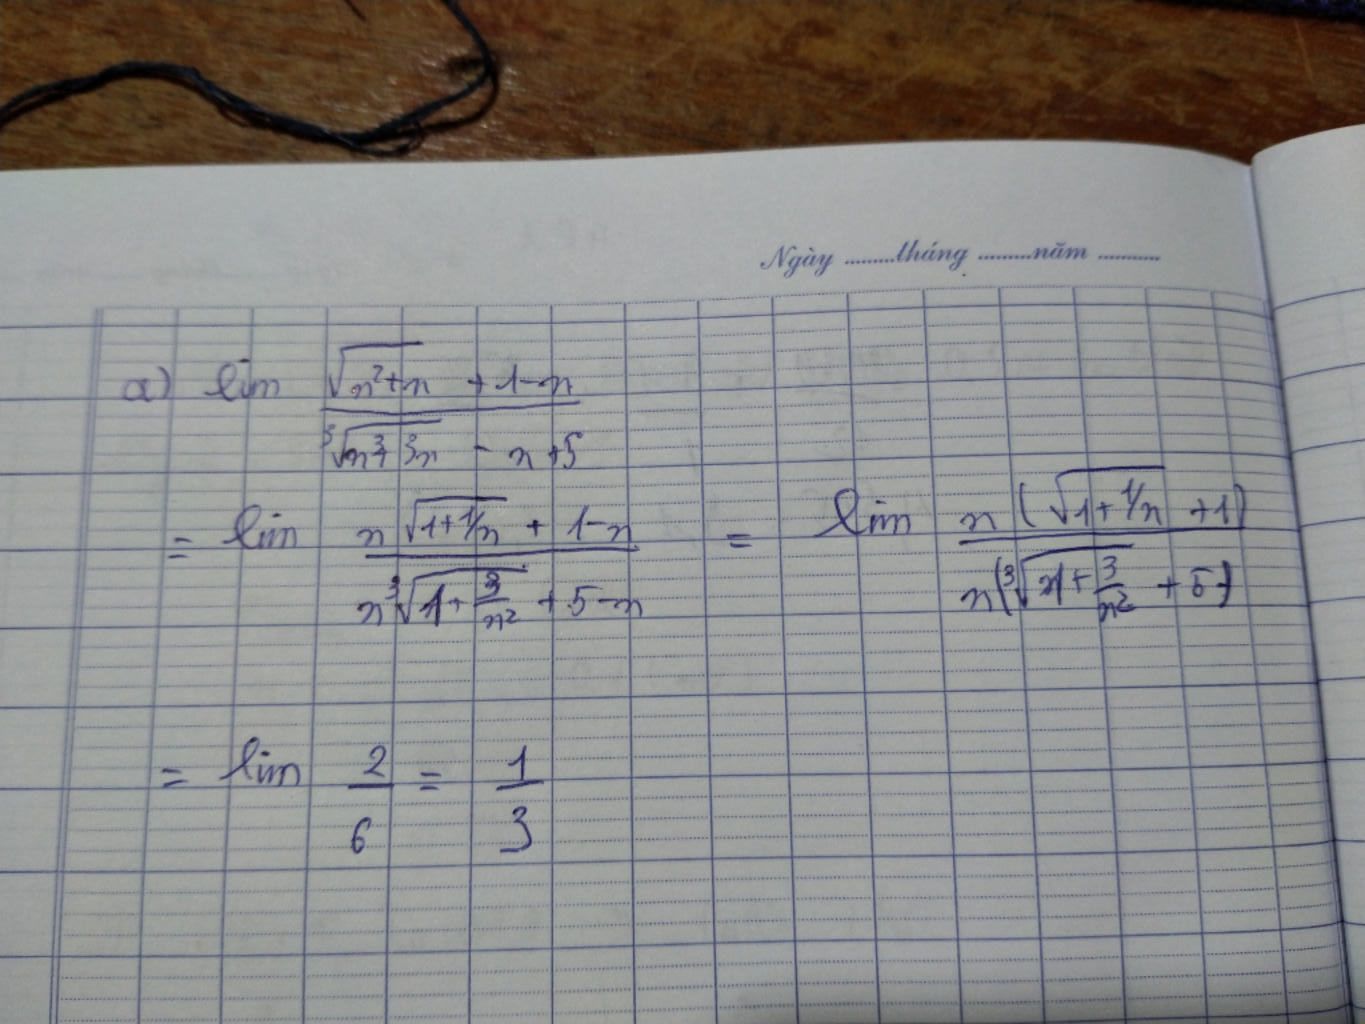 Ngày ........tháng ........năm ..........
a) lim (√(n²+n) + 1-n)/(³√(n³+3n) - n+5)
= lim (n√(1+1/n) + 1-n)/(n³√(1+3/n²) + 5-n) = lim (n(√(1+1/n) +1))/(n(³√(1+3/n²) + 5))
= lim 2/6 = 1/3